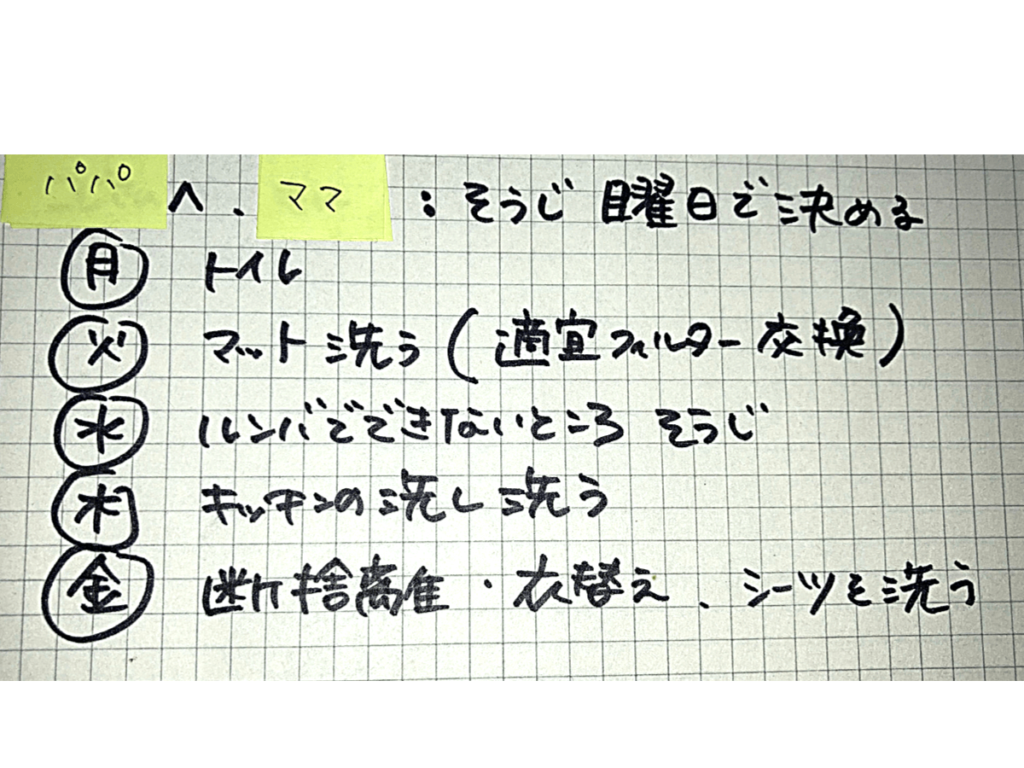 パパへ、ママ：そうじ 目曜日で決める
月 トイレ
火 マット洗う（適宜フィルター交換）
水 ルンバでできないところ そうじ
木 キッチンの洗し洗う
金 断捨離・衣替え、シーツを洗う